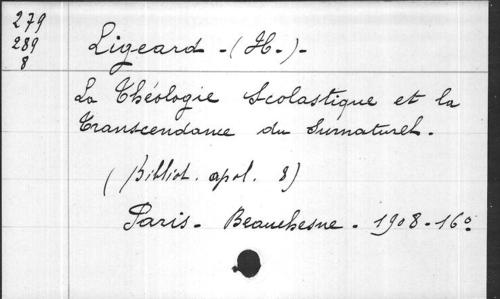 279
289
8
Ligeard - (H.) -
La Théologie Scolastique et la
Transcendance du Surnaturel.
(Bibliot. apol. 8)
Paris - Beauchesne - 1908 - 16°